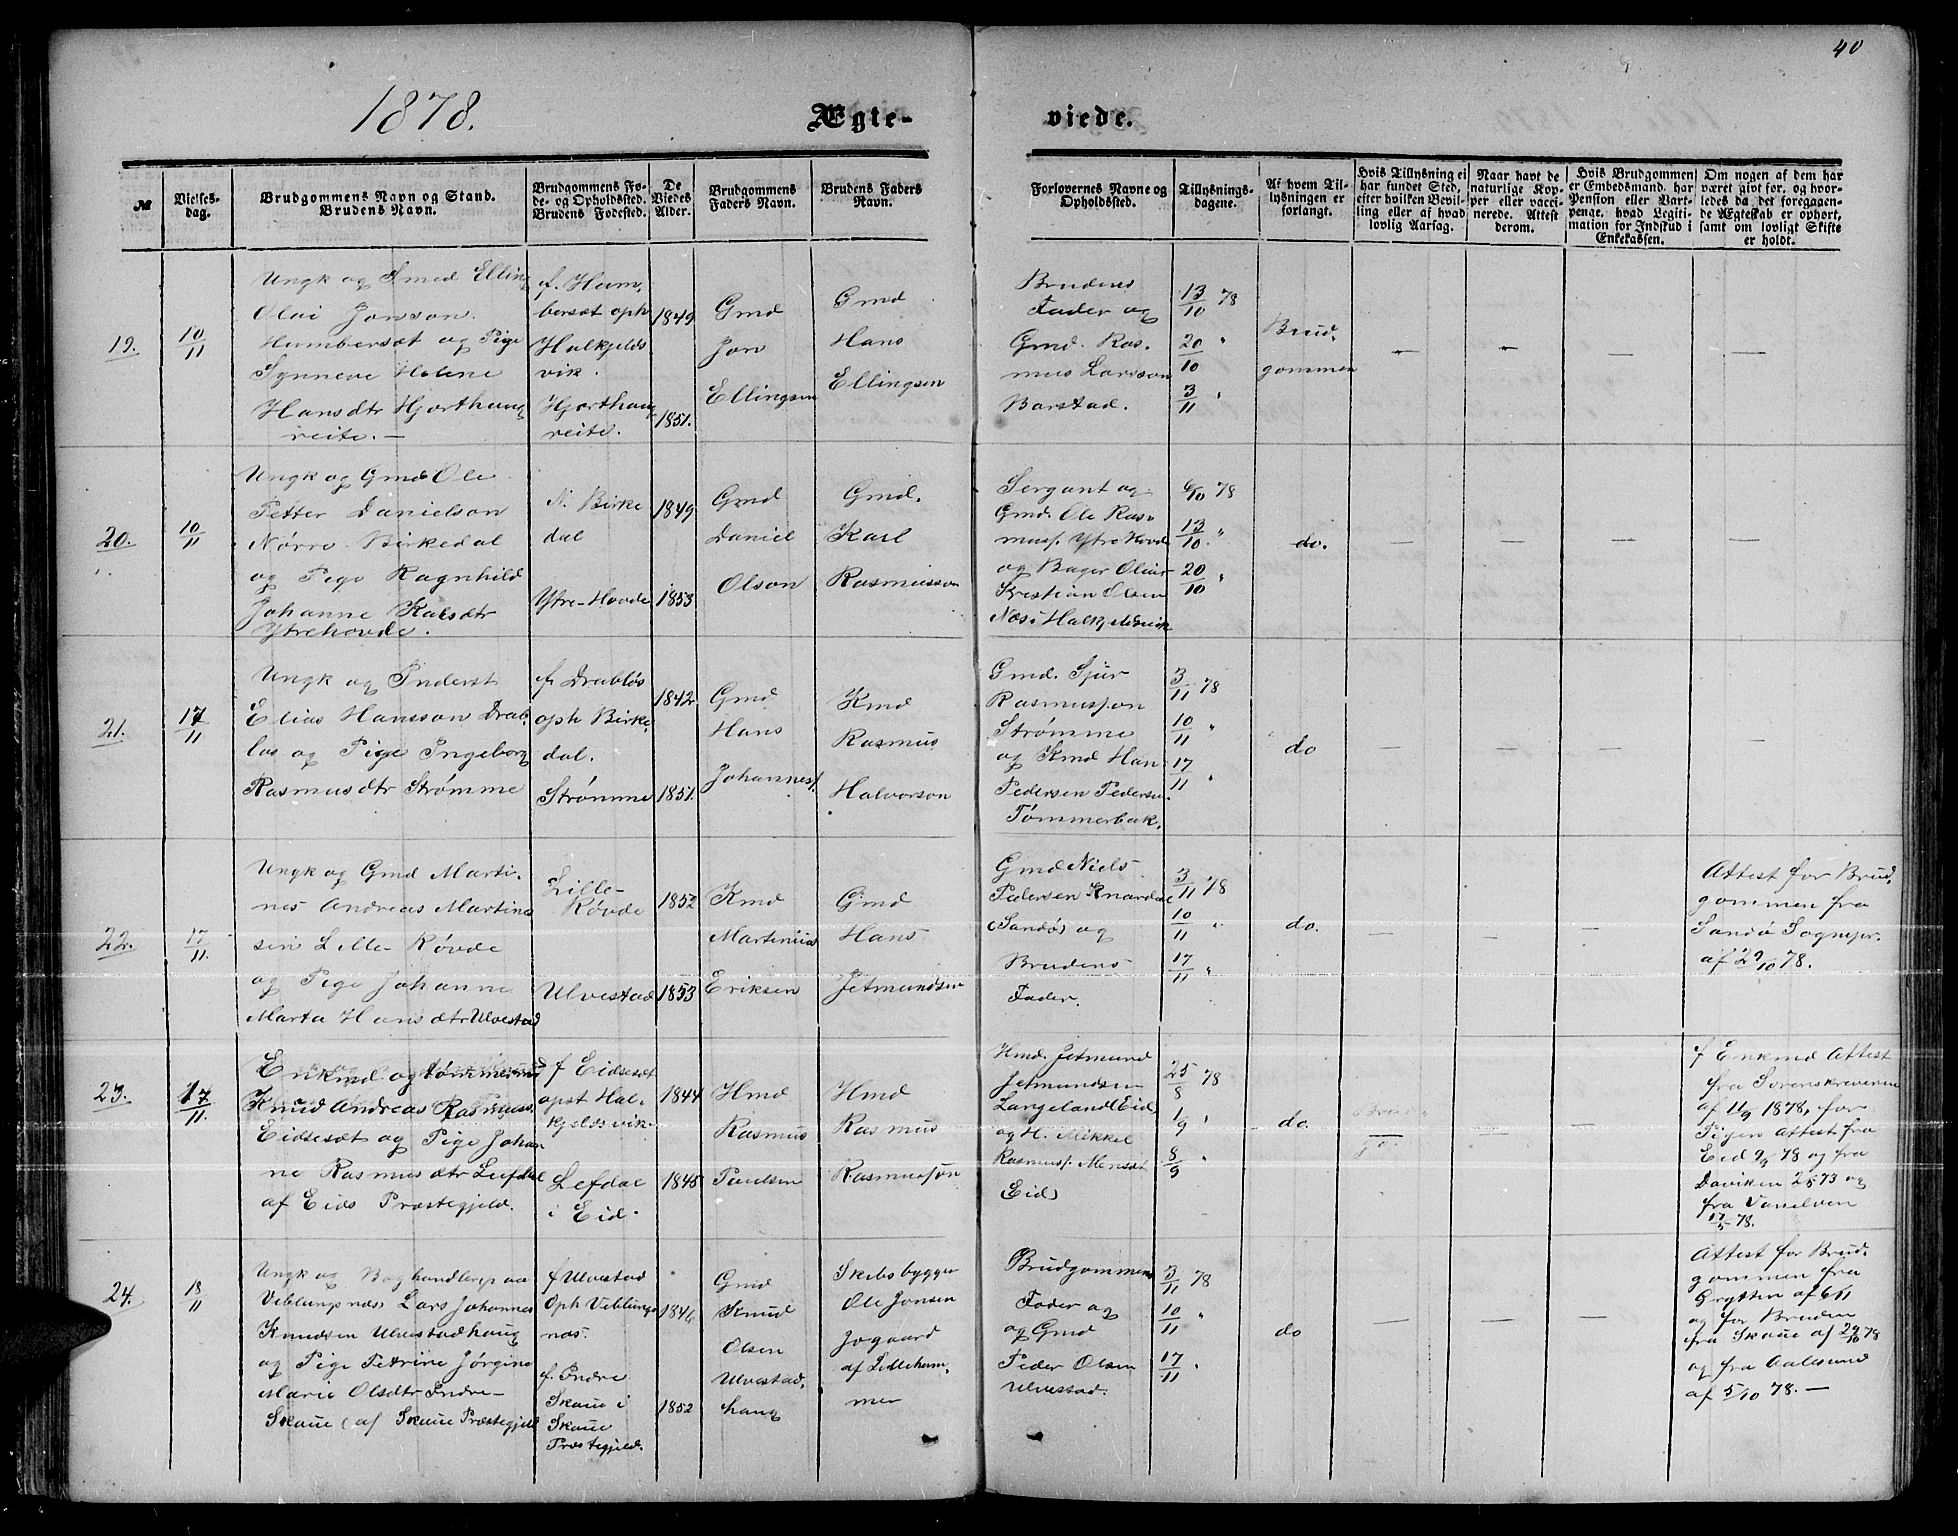 40
1878.
Ægte-
viede.
№
Vielses-
dag.
Brudgommens Navn og Stand.
Brudens Navn.
Brudgommens Fø-
de- og Opholdssted.
Brudens Fødested.
De
Viedes
Alder.
Brudgommens
Faders Navn.
Brudens Faders
Navn.
Forlovernes Navne og
Opholdssted.
Tillysnings-
dagene.
Af hvem Til-
lysningen er
forlangt.
Hvis Tillysning ei
har fundet Sted,
efter hvilken Bevil-
ling eller af hvad
lovlig Aarsag.
Naar havt de
naturlige Kop-
per eller vacci-
nerede. Attest
derom.
Hvis Brudgommen
er Embedsmand, har
Pension eller Vart-
penge, hvad Legiti-
mation for Indskud i
Enkekassen.
Om nogen af dem har
været gift før, og hvor-
ledes da det foregaaen-
de Ægteskab er ophørt,
samt om lovligt Skifte
er holdt.
19.
10/11
Ungk og Smed Elling
Olai Jonson
Humbersæt og Pige
Synneve Helene
Hansdtr Hjorthaug
reite. —
f. Hum,
bersæt oph
Halkjelds
vik.
Hjorthaug
reite.
1849
1851.
Gmd
Jon
Ellingsen
Gmd
Hans
Ellingsen
Brudens
Fader og
Gmd. Ras-
mus Larsson
Barstad.
13/10 78
20/10 "
3/11 "
Brud,
gommen
—
—
—
—
20.
10/11
Ungk og Gmd Ole
Petter Danielson
Nørre Birkedal
og Pige Ragnhild
Johanne Kalsdtr
Ytrehovde.
N. Birke
dal
Ytre-Hovde
1849
1853
Gmd
Daniel
Olson
Gmd.
Karl
Rasmusson
Sergant og
Gmd. Ole Ras-
musf. Ytre Hovde
og Bager Oluf
Kristian Olsen
Næs i Halkjeldsvik
6/10 78
13/10 "
20/10 "
do.
—
—
—
—
21.
17/11
Ungk og Inderst
Elias Hansson Drab,
løs og Pige Ingeborg
Rasmusdtr Strømme
f. Drabløs
oph Birke,
dal.
Strømme
1842
1851.
Gmd
Hans
Johannesf.
Kmd
Rasmus
Halvorson
Gmd. Sjur
Rasmusson
Strømme
og Kmd Han
Pedersen Pedersen
Tømmerbak.
3/11 78
10/11 "
17/11 "
do
—
—
—
—
22.
17/11.
Ungk og Gmd Marti-
nes Andreas Martine
sen Lille-Røvde
og Pige Johanne
Marta Hansdtr Ulvestad
Lille-
Røvde
Ulvestad
1852
1853
Kmd
Martinius
Eriksen
Gmd
Hans
Jetmundsen
Gmd Niels
Pedersen Knardal
(Sandø) og
Brudens
Fader.
3/11 78
10/11 "
17/11 "
do.
—
—
—
Attest for Brud,
gommen fra
Sandø Sognepr.
af 29/10 78.
23.
17/11.
Enkmd. og tømmermd
Knud Andreas Rasmuss.
Eidsesæt og Pige Johan
ne Rasmusdtr Lefdal
af Eids Præstegjeld.
f Eidsesæt
opst Hal-
kjeldsvik
Lefdal
i Eid.
1844
1845
Hmd
Rasmus
Paulsen
Hmd
Rasmus
Rasmusson
Hmd. Jetmund
Jetmundsen
Langeland (Eid)
og H. Mikkel
Rasmusf. Mensæt
(Eid)
25/8 78
1/9 "
8/9 "
do.
—
—
f Enkmd Attest
fra Sorenskriveren
af 11/9 1878, for
Pigen Attest fra
Eid 9/9 78 og fra
Daviken 2/5 73 og
fra Vanelven
17/5 78.
24.
18/11
Ungk og Boghandler paa
Veblungsnæs Lars Johannes
Knudsen Ulvestadhaug
og Pige Petrine Jørgine
Marie Olsdtr Indre-
Skaue (af Skaue Præstegjeld
f Ulvestad
Oph Veblungs
næs.
f. Indre
Skaue i
Skaue
Præstegjeld.
1846
1852
Gmd
Knud
Olsen
Ulvestad,
haug
Skibsbygger
Ole Jonsen
Jogaard
af Lilleham,
mer
Brudgommens
Fader og
og Gmd
Peder Olsen
Ulvestad.
3/11 78
10/11 "
17/11 "
do
—
—
—
Attest for Brud.
gommen fra
Grytten af 6/11
og for Bruden
fra Skaue af 29/10 78
og fra Aalesund
af 5/10 78. —